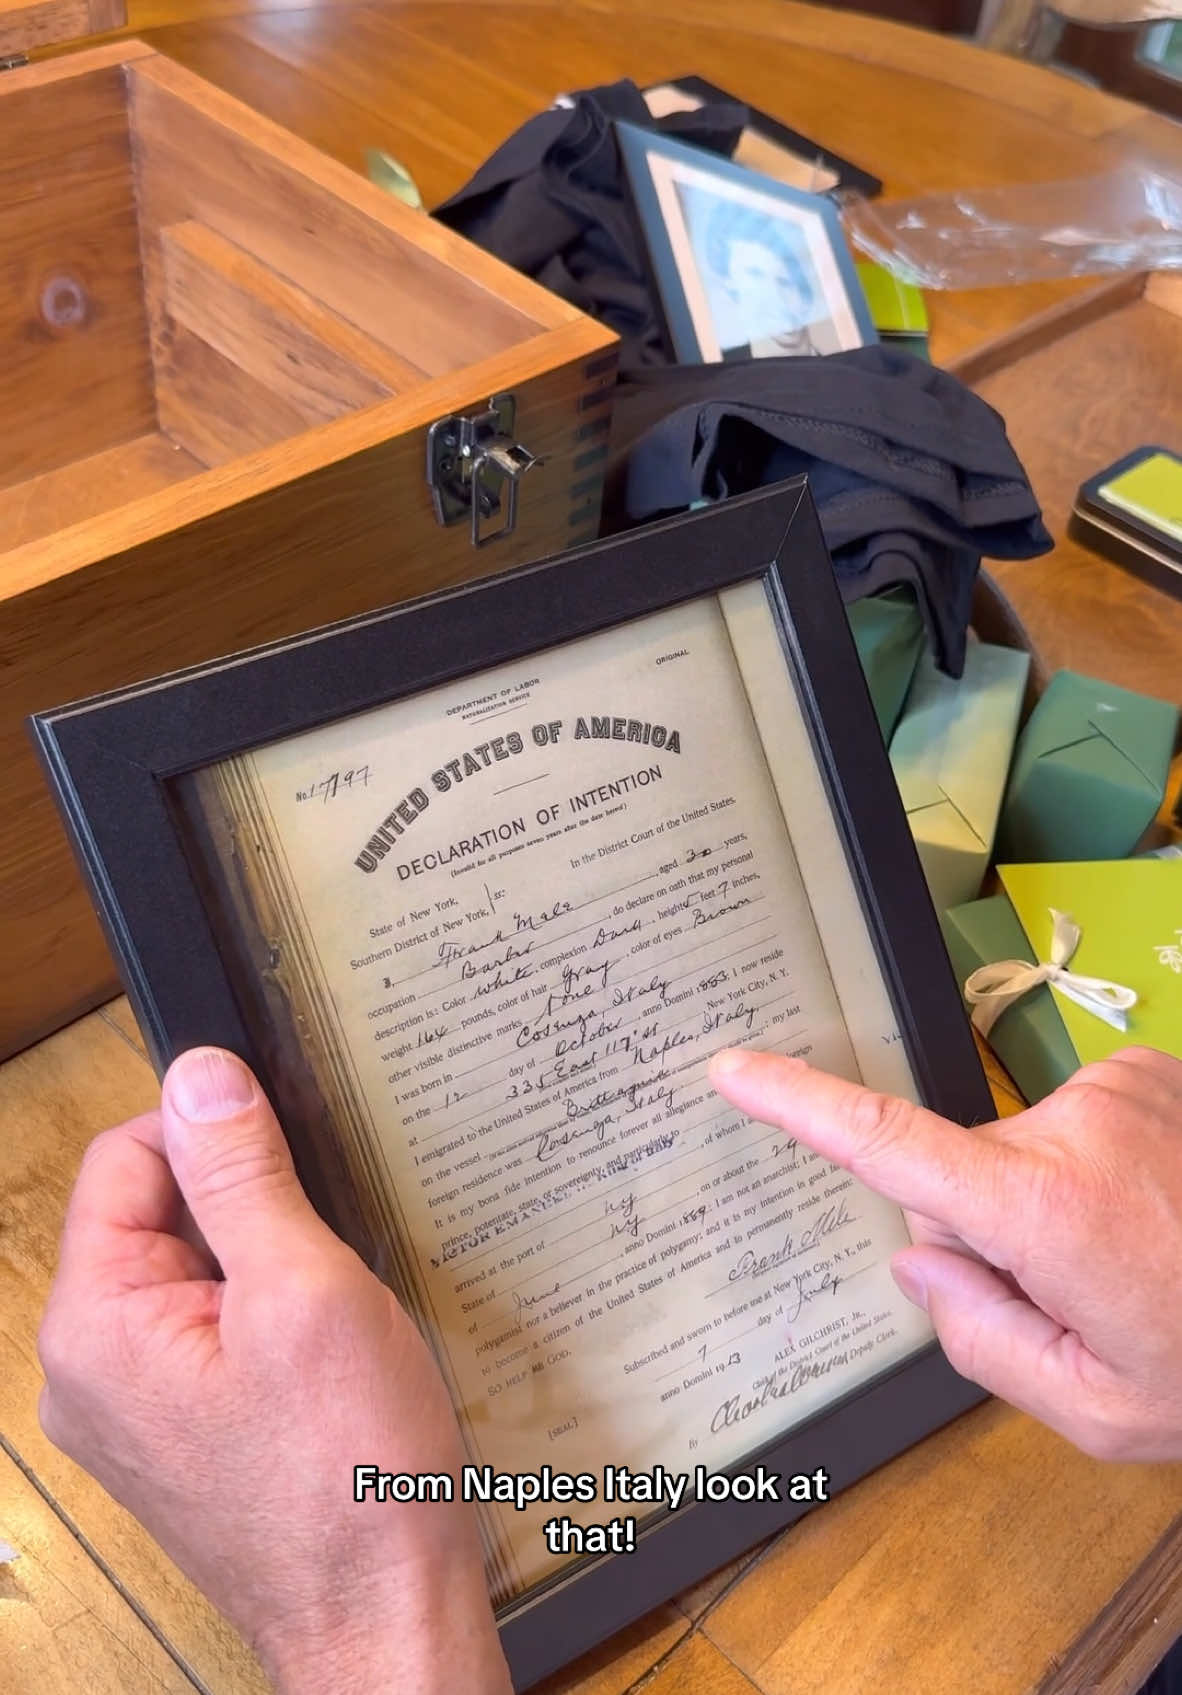 ORIGINAL
DEPARTMENT OF LABOR
NATURALIZATION SERVICE
No. 17197
UNITED STATES OF AMERICA
DECLARATION OF INTENTION
(Invalid for all purposes seven years after the date hereof)
In the District Court of the United States.
State of New York,
Southern District of New York, ss:
I, Frank Mele, aged 30 years,
occupation Barber, do declare on oath that my personal
description is: Color white, complexion Dark, height 5 feet 7 inches,
weight 164 pounds, color of hair Gray, color of eyes Brown
other visible distinctive marks None
I was born in Cosenza, Italy
on the 12 day of October, anno Domini 1883; I now reside
at 335 East 117" st New York City, N. Y.
I emigrated to the United States of America from Naples, Italy
on the vessel
foreign residence was Cosenza, Italy ; my last
It is my bona fide intention to renounce forever all allegiance
prince, potentate, state, or sovereignty, and particularly to
VICTOR EMANUEL , of whom I
arrived at the port of NY, on or about the 29
State of NY
of June, anno Domini 1889; I am not an anarchist; I am
polygamist nor a believer in the practice of polygamy; and it is my intention in good
to become a citizen of the United States of America and to permanently reside therein:
SO HELP ME GOD.
Frank Mele
Subscribed and sworn to before me at New York City, N. Y., this
7 day of July
anno Domini 1913
[SEAL]
ALEX GILCHRIST, JR.,
Clerk of the District Court of the United States.
By Deputy Clerk.
From Naples Italy look at
that!